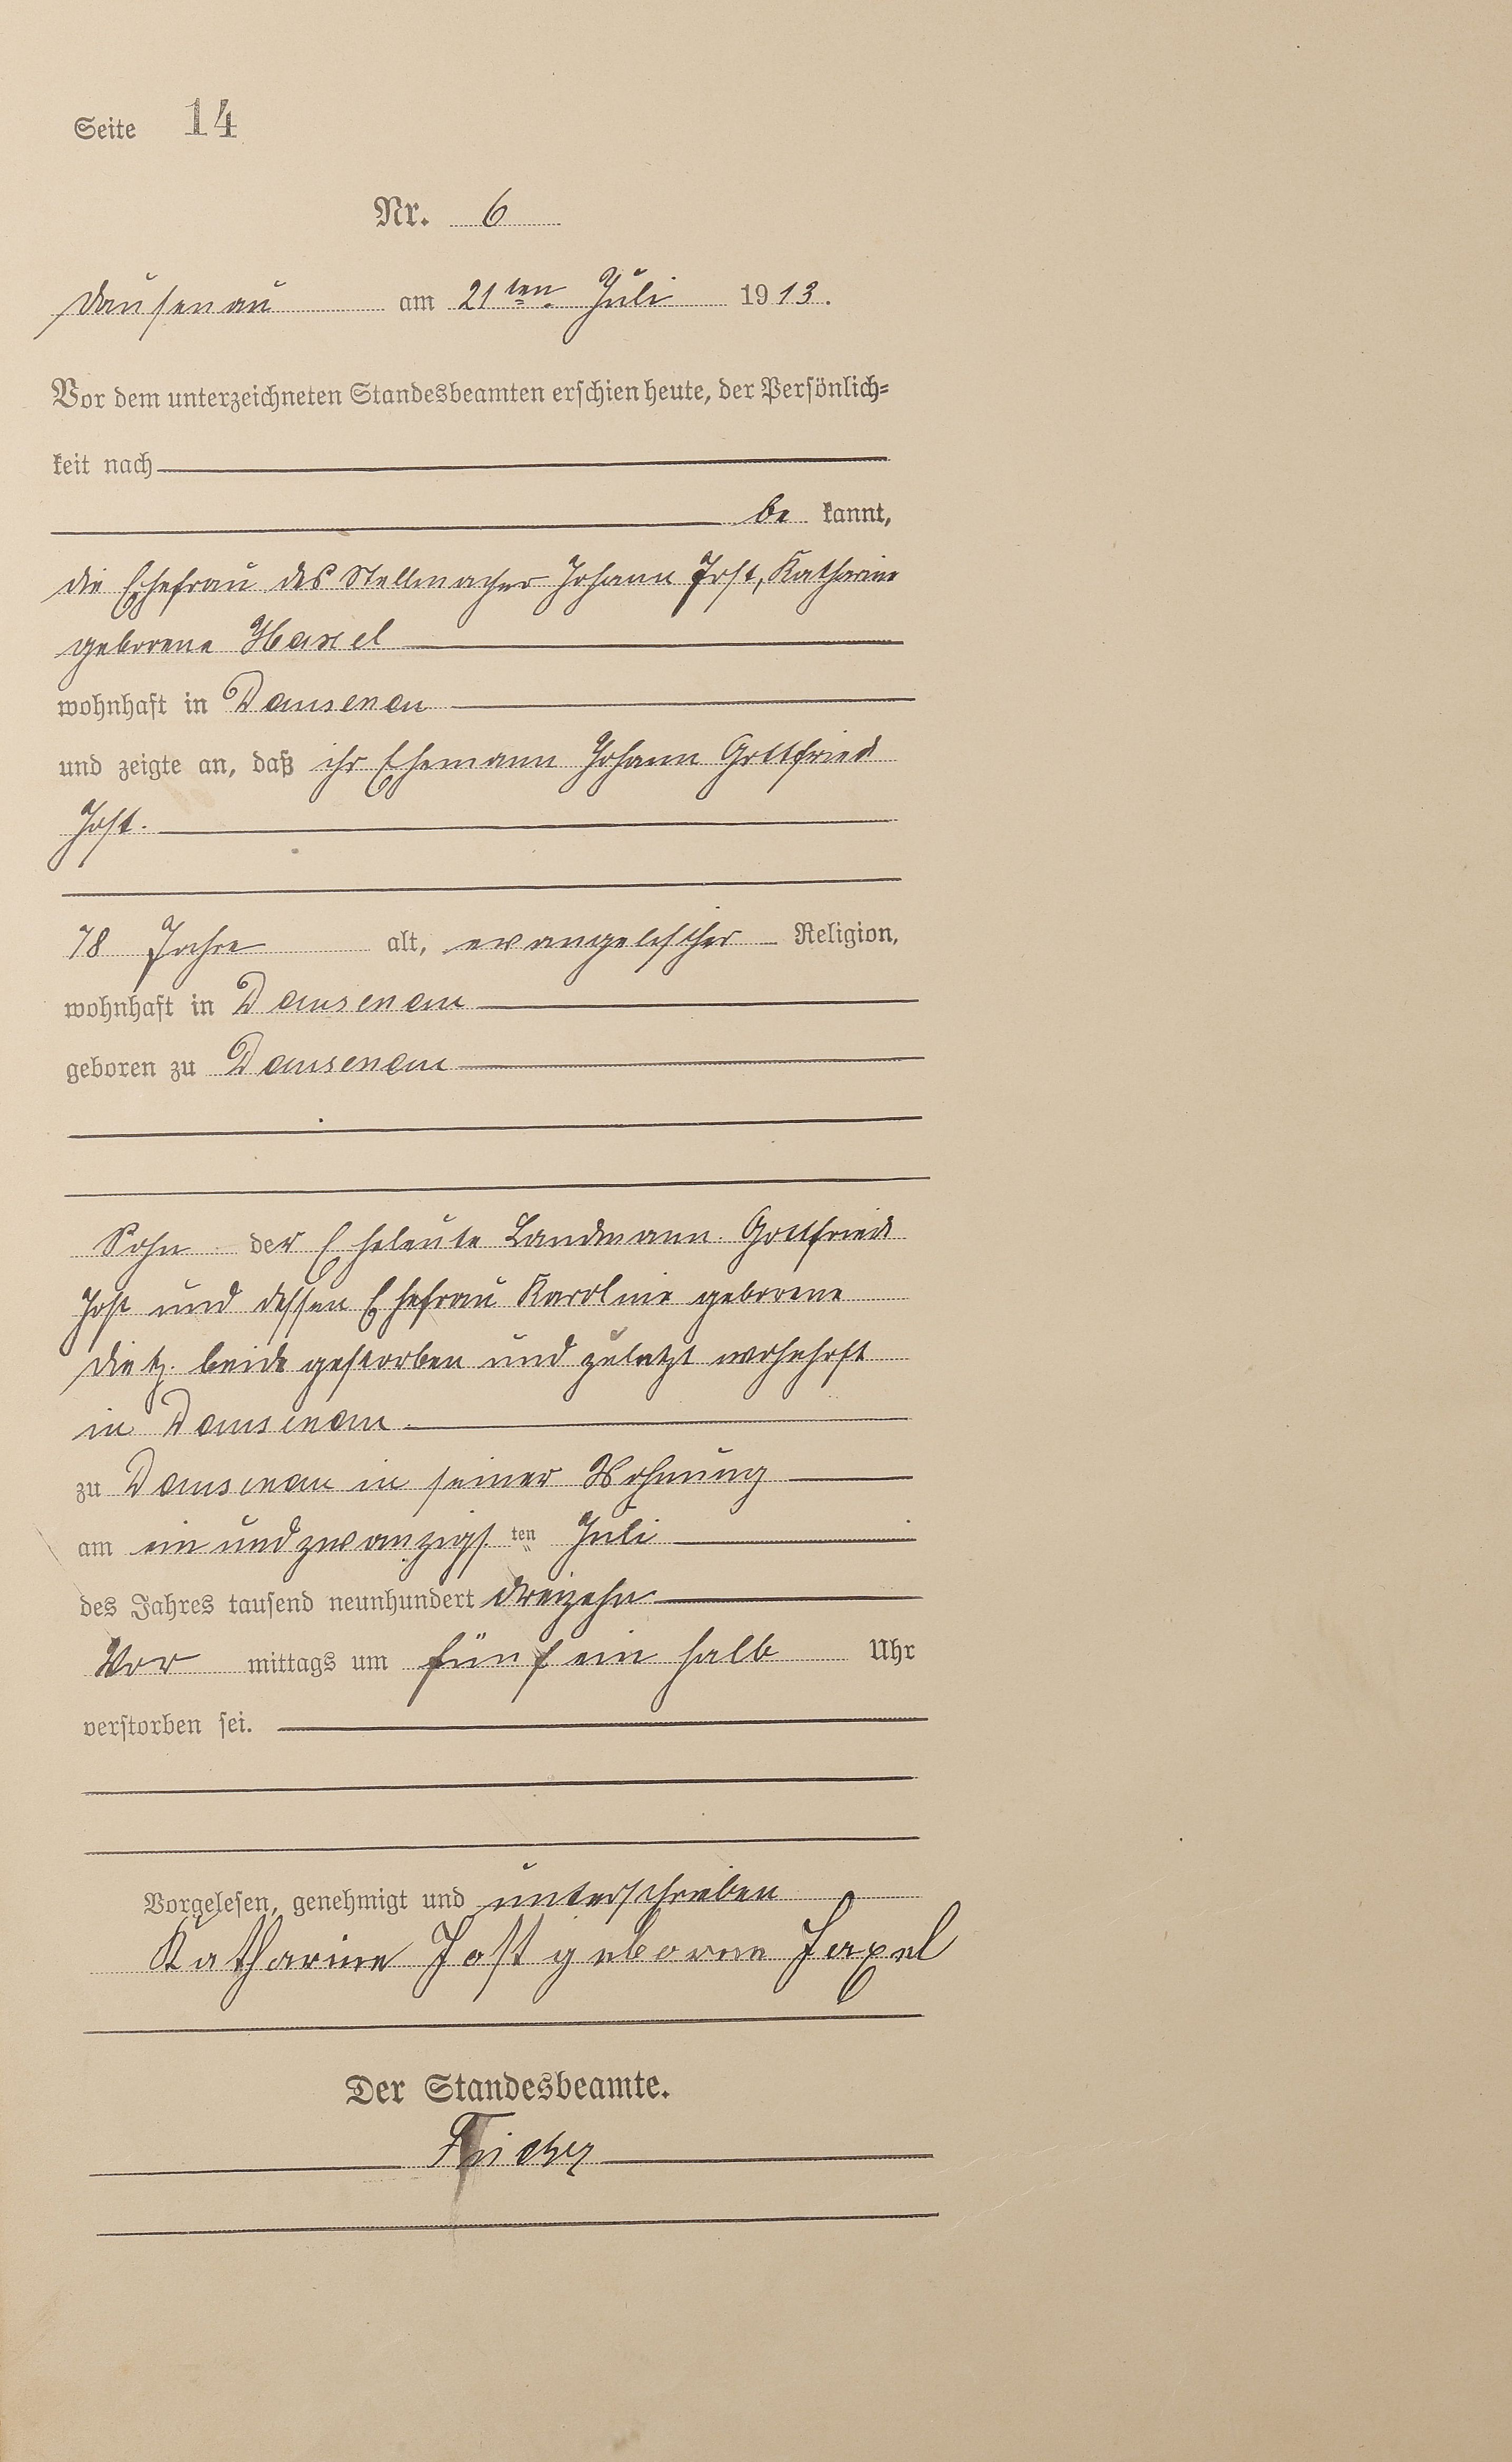 Seite 14
Nr. 6
Dausenau am 21ten Juli 1913.
Vor dem unterzeichneten Standesbeamten erschien heute, der Persönlich=
keit nach
be kannt,
die Ehefrau des Stellmacher Johann Jost, Katharine
geborene Haxel
wohnhaft in Dausenau
und zeigte an, daß ihr Ehemann Johann Gottfried
Jost.
78 Jahre alt, evangelischer Religion,
wohnhaft in Dausenau
geboren zu Dausenau
Sohn der Eheleute Landmann Gottfried
Jost und dessen Ehefrau Karoline geborene
Dietz. beide gestorben und zuletzt wohnhaft
in Dausenau.
zu Dausenau in seiner Wohnung
am ein und zwanzigsten Juli
des Jahres tausend neunhundert dreizehn
Vor mittags um fünf ein halb Uhr
verstorben sei.
Vorgelesen, genehmigt und unterschrieben
Katharine Jost geborne Haxel
Der Standesbeamte.